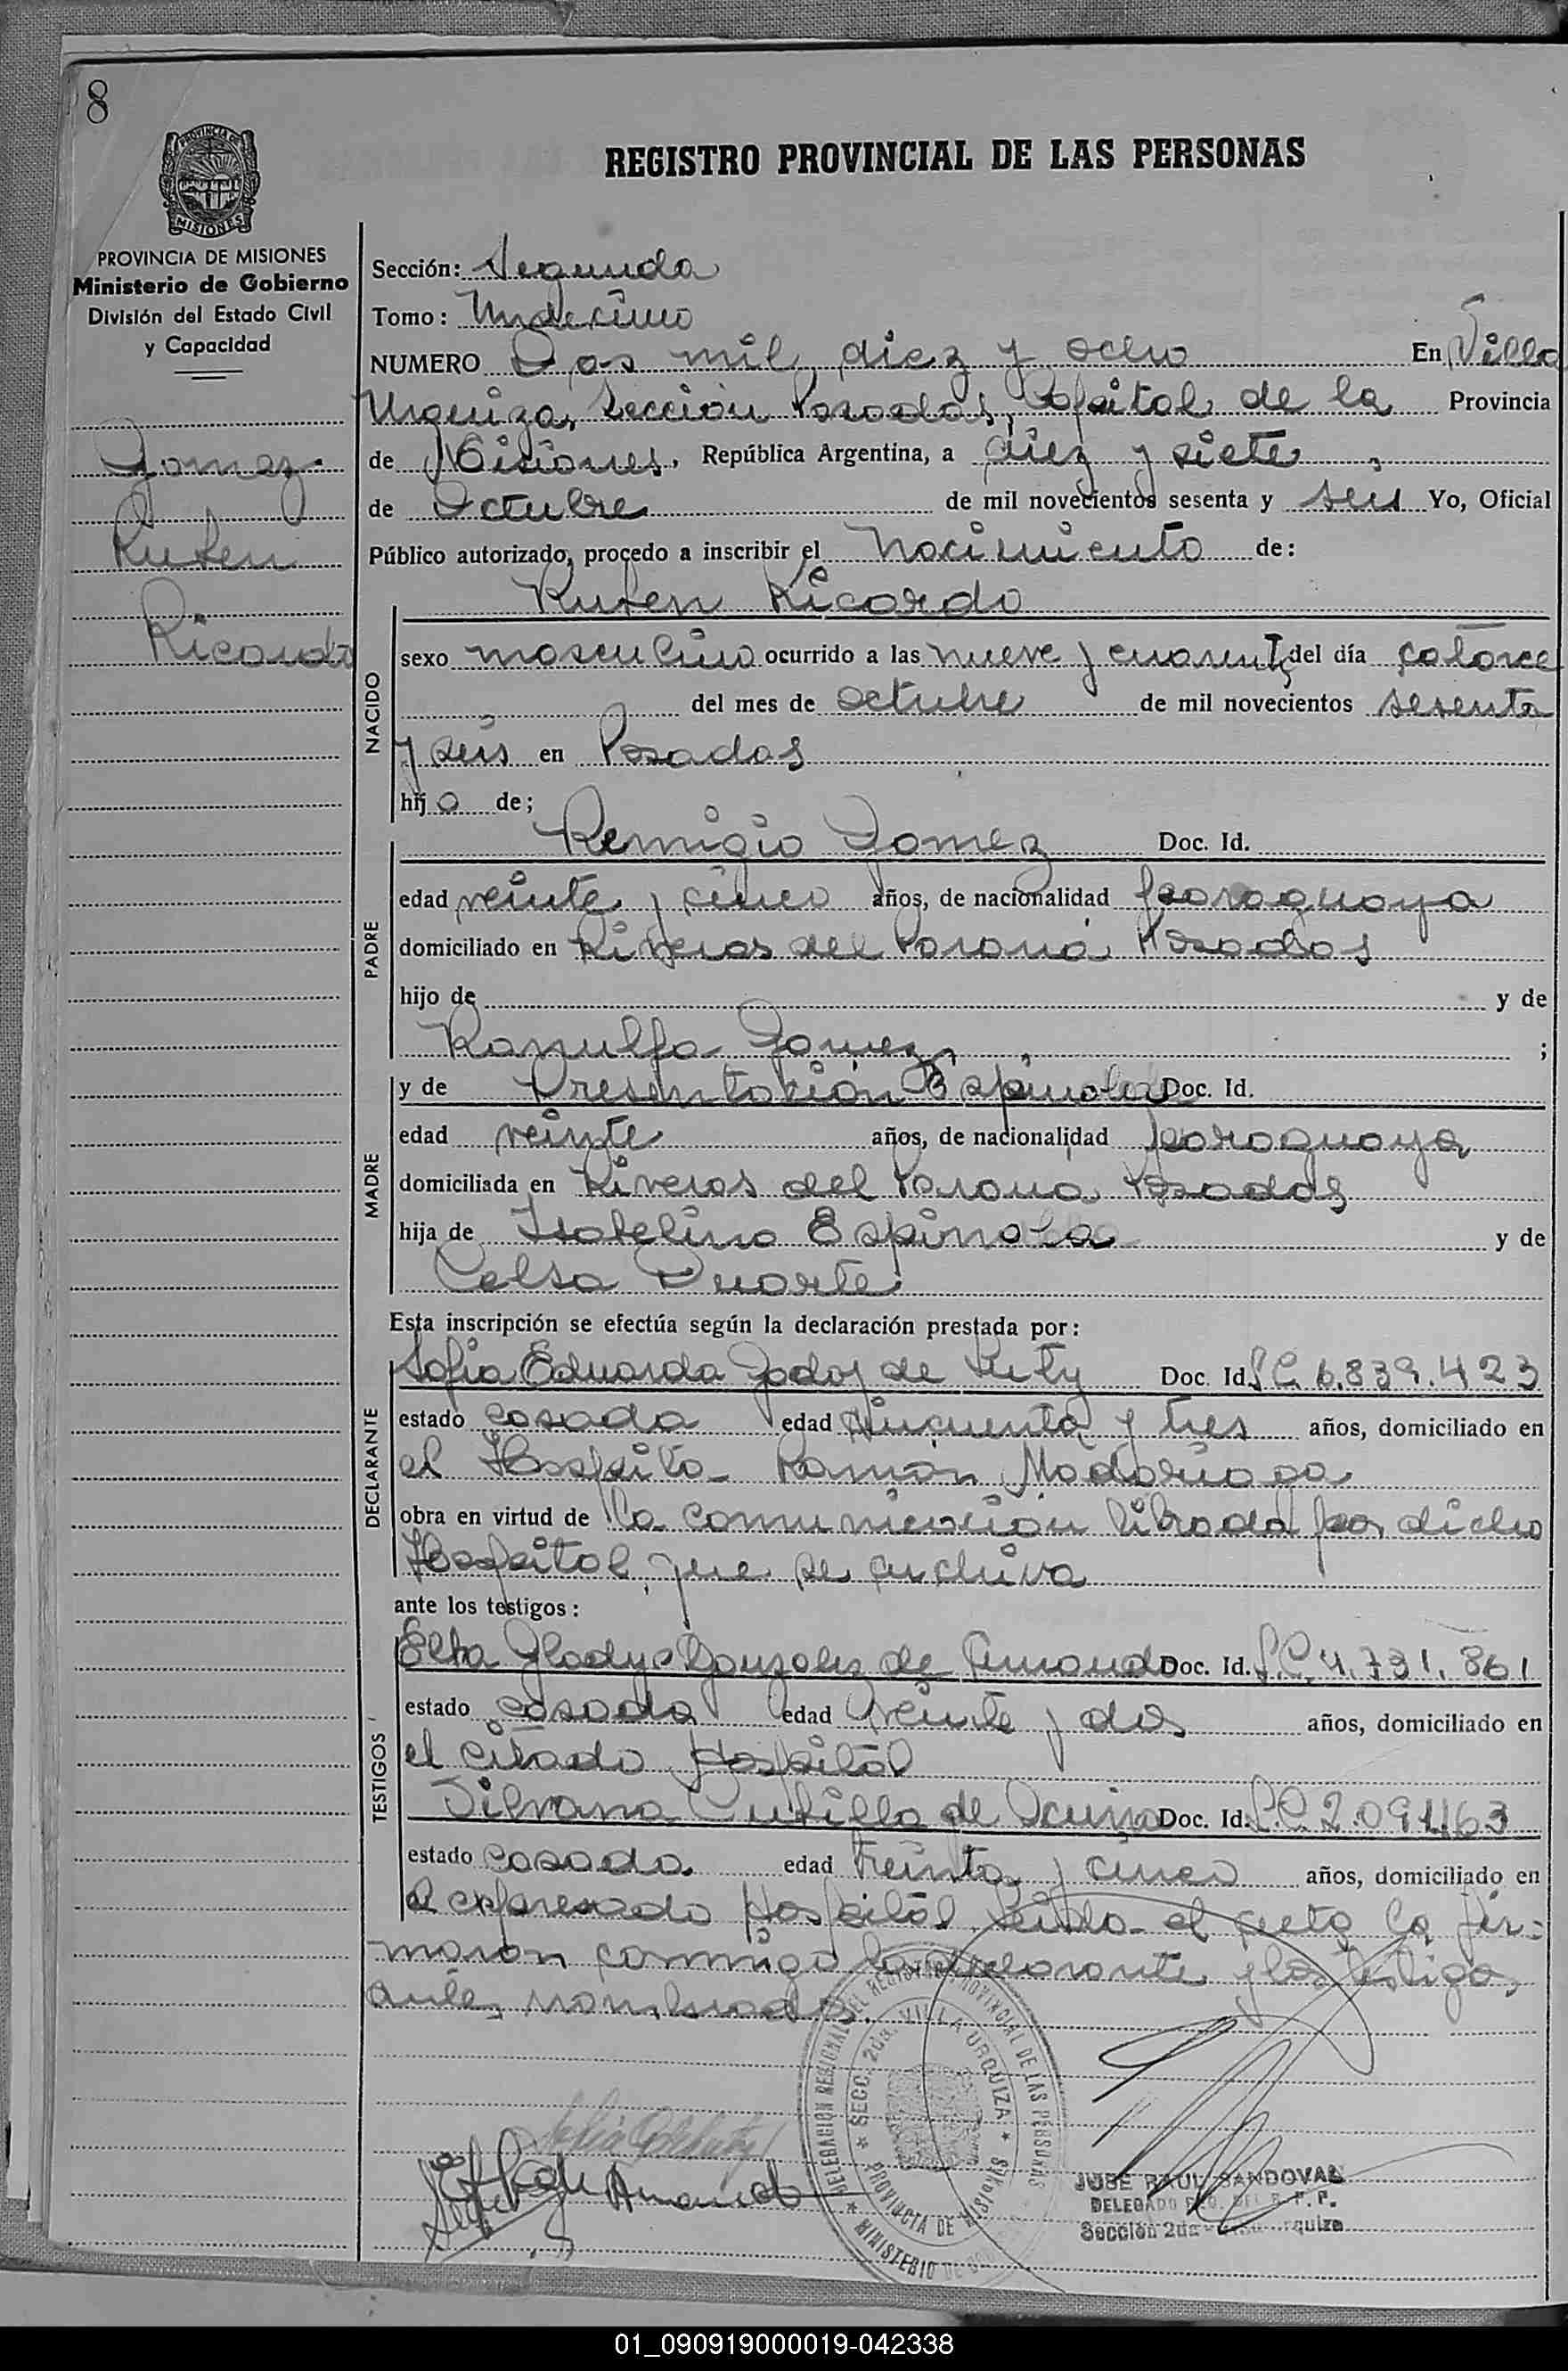 8
PROVINCIA DE
MISIONES
REGISTRO PROVINCIAL DE LAS PERSONAS
PROVINCIA DE MISIONES
Ministerio de Gobierno
División del Estado Civil
y Capacidad
Gomez
Ruben
Ricardo
Sección: Segunda
Tomo: Undecimo
NUMERO Dos mil diez y ocho En Villa
Urquiza, Sección Posadas, Capital de la Provincia
de Misiones, República Argentina, a diez y siete
de Octubre de mil novecientos sesenta y seis Yo, Oficial
Público autorizado, procedo a inscribir el Nacimiento de:
Ruben Ricardo
NACIDO
sexo masculino ocurrido a las nueve y cuarenta del día catorce
del mes de octubre de mil novecientos sesenta
y seis en Posadas
hijo de;
Remigio Gomez Doc. Id.
PADRE
edad veinte y cinco años, de nacionalidad paraguaya
domiciliado en Riveras del Paraná Posadas
hijo de y de
Ranulfa Gomez ;
y de Presentación Espinola Doc. Id.
MADRE
edad veinte años, de nacionalidad paraguaya
domiciliada en Riveras del Paraná Posadas
hija de Isabelino Espinola y de
Celsa Duarte
Esta inscripción se efectúa según la declaración prestada por:
Sofia Eduarda Godoy de Doc. Id. L.C. 6.839.423
DECLARANTE
estado casada edad cincuenta y tres años, domiciliado en
el Hospital Ramón Madariaga
obra en virtud de la comunicación librada por dicho
Hospital que se archiva
ante los testigos:
Elba Gladys Gonzalez de Amando Doc. Id. L.C. 4.731.861
TESTIGOS
estado casada edad veinte y dos años, domiciliado en
el citado Hospital
Silvana Cubilla de Acuña Doc. Id. L.C. 2.091463
estado casada edad treinta y cinco años, domiciliado en
el expresado Hospital Leida el acta la fir-
maron conmigo la declarante y los testigos
antes nombrados.
DELEGACION REGIONAL DEL REGISTRO PROVINCIAL DE LAS PERSONAS
SECC. 2da. VILLA URQUIZA
PROVINCIA DE MISIONES
MINISTERIO DE
Amando
JOSE RAUL SANDOVAL
DELEGADO
Sección 2da
01_090919000019-042338